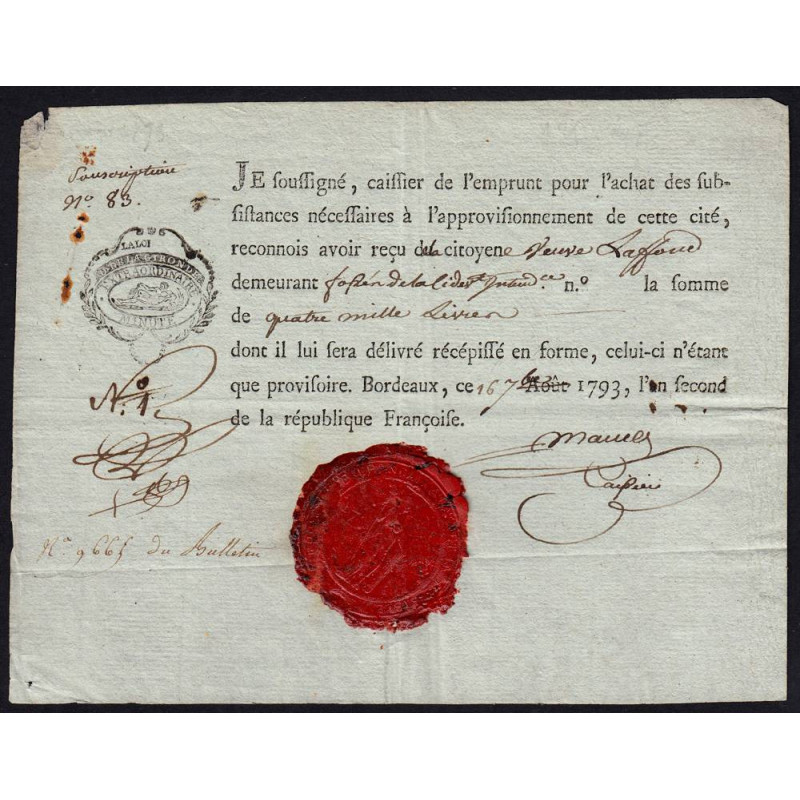 Souscription
Nº 83.
LA LOI
DEP. DE LA GIRONDE
EXTRAORDINAIRE
MINUTE
JE souſſigné, caiſſier de l'emprunt pour l'achat des ſub-
ſiſtances néceſſaires à l'approviſionnement de cette cité,
reconnois avoir reçu de la citoyene veuve Laffond
demeurant foſſés de la Cidev.t nº la ſomme
de quatre mille Livres
dont il lui ſera délivré récépiſſé en forme, celui-ci n'étant
que proviſoire. Bordeaux, ce 16 7bre Août 1793, l'an second
de la république Françoiſe.
Nº 1
caissier
Nº 9665 du Bulletin